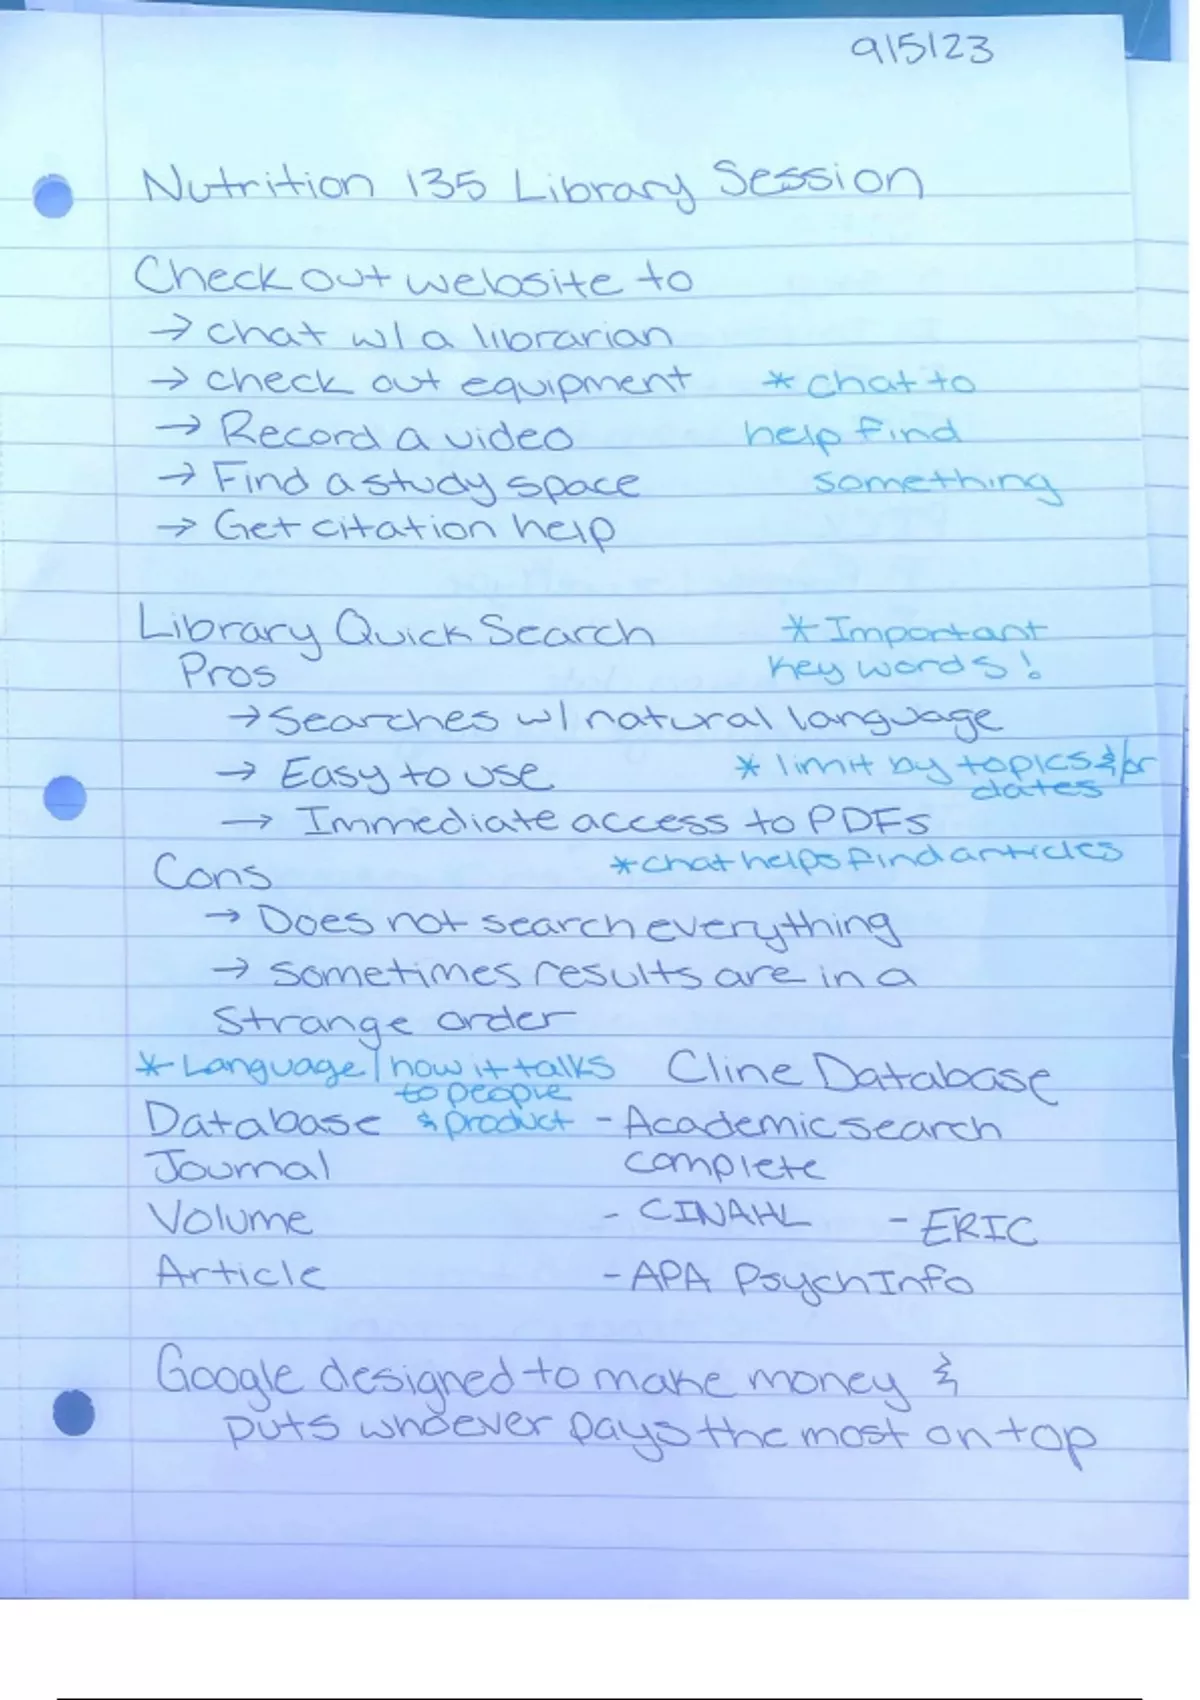 9/5/23
Nutrition 135 Library Session
Check out website to
→ chat w/ a librarian
→ check out equipment * chat to
→ Record a video help find
→ Find a study space something
→ Get citation help
Library Quick Search * Important
Pros Key words!
→ Searches w/ natural language
→ Easy to use * limit by topics &/or
dates
→ Immediate access to PDFs
Cons * chat helps find articles
→ Does not search everything
→ sometimes results are in a
strange order
* Language / how it talks Cline Database
to people
Database & product - Academic search
Journal complete
Volume - CINAHL - ERIC
Article - APA PsychInfo
Google designed to make money &
puts whoever pays the most on top